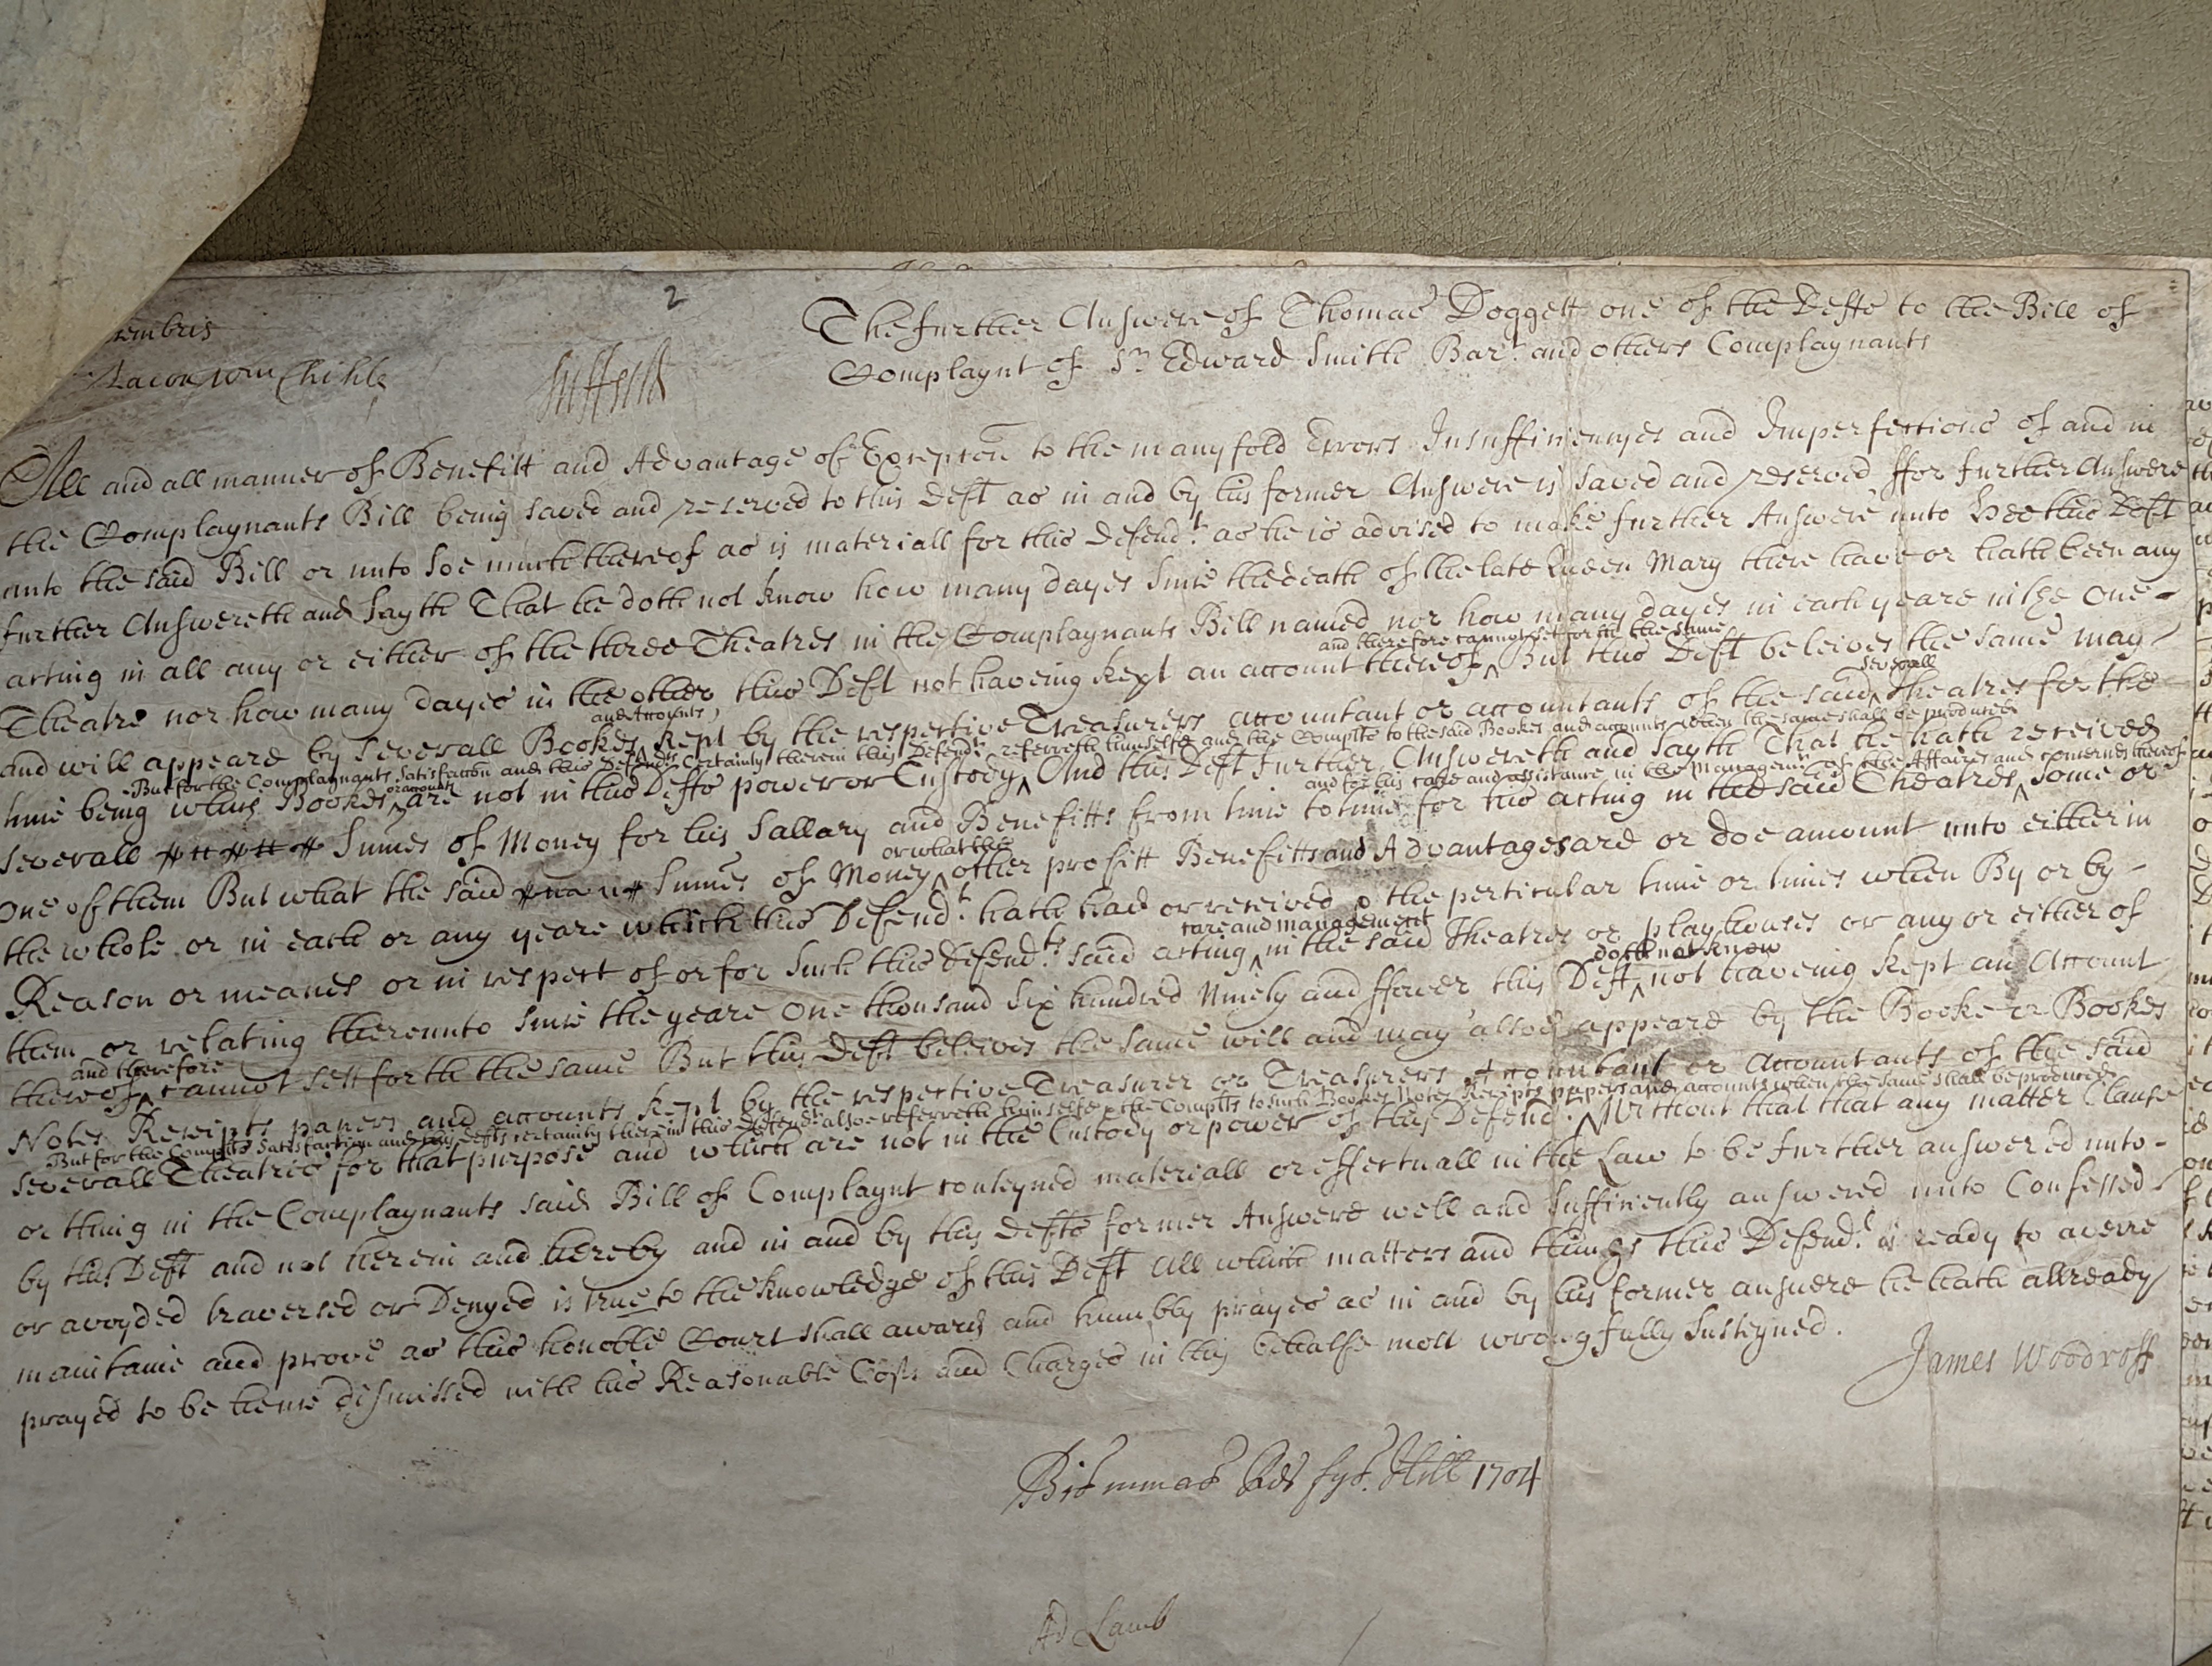 2
The further Answere of Thomas Doggett one of the Defts to the Bill of
Complaynt of Sr. Edward Smith Bart. and others Complaynants
embris
Chihle
All and all manner of Benefitt and Advantage of Excepcon to the manyfold Errors Insufficiencyes and Imperfections of and in
the Complaynants Bill being saved and reserved to this Deft as in and by his former Answere is saved and reserved ffor further Answere
unto the said Bill or unto soe much thereof as is materiall for this Defendt. as he is advised to make further Answere unto Hee this Deft
further Answereth and sayth That he doth not know how many dayes since the death of the late Queen Mary there have or hath been any
acting in all any or either of the three Theatres in the Complaynants Bill named nor how many dayes in each yeare in the One
and therefore cannot set forth the same
Theatre nor how many dayes in the other this Deft not haveing kept an account thereof ^ But this Deft beleives the same may
and Accounts
severall
and will appeare by severall Bookes ^ kept by the respective Treasurers accountant or accountants of the said ^ Theatres for the
But for the Complaynants satisfaccon and this Defendts. certainty therein this Defendt. referreth himselfe and the Complts to the said Bookes and accounts when the same shall be produced
or accounts
time being which Bookes ^ are not in this Defts power or Custody ^ And this Deft further Answereth and sayth That he hath received
and for his care and assistance in the managemt of the Affaires and concernes thereof
severall Summes of Money for his Sallary and Benefitts from time to time for his acting in the said Theatres ^ some or
or what the
one of them But what the said Summes of Money ^ other profitt Benefitts and Advantages are or doe amount unto either in
the whole or in each or any yeare which this Defendt. hath had or received or the perticular time or times when By or by
care and management
Reason or meanes or in respect of or for such this Defendts. said acting ^ in the said Theatres or playhouses or any or either of
doth not know
them or relating thereunto since the yeare One thousand Six hundred Ninety and ffower this Deft ^ not haveing kept an Account
and therefore
thereof ^ cannot sett forth the same But this Deft beleives the same will and may alsoe appeare by the Booke or Bookes
Notes Receipts papers and accounts kept by the respective Treasurer or Treasurers Accountant or Accountants of the said
But for the Complts satisfaction and this Defts certainty therein this Defendt. alsoe referreth himselfe & the Complts to such Bookes Notes Receipts papers and accounts when the same shall be produced
severall Theatres for that purpose and which are not in the Custody or power of this Defendt. ^ Without that that any matter Clause
or thing in the Complaynants said Bill of Complaynt conteyned materiall or effectuall in the Law to be further answered unto
by this Deft and not herein and hereby and in and by this Defts former Answere well and sufficiently answered unto Confessed
or avoyded traversed or Denyed is true to the knowledge of this Deft All which matters and things this Defendt. is ready to averre
maintaine and prove as this honoble Court shall award and humbly prayes as in and by his former answere he hath allready
prayed to be hence dismissed with his Reasonable Costs and Charges in this behalfe most wrongfully susteyned.
James Woodroff
Hill 1704
Ad Lamb